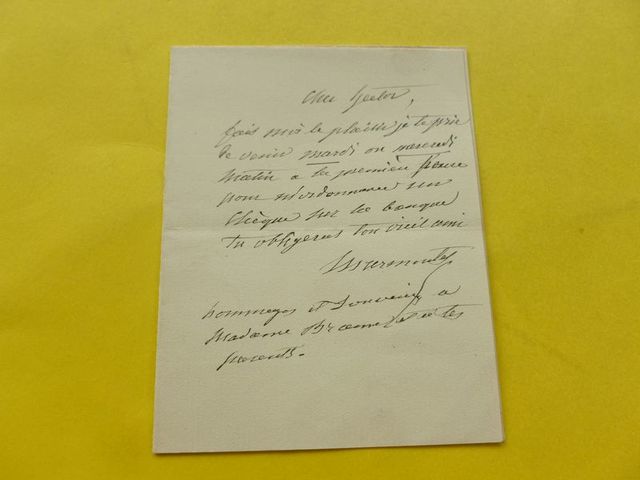 Cher Hector,
fais moi le plaisir je te prie
de venir mardi ou mercredi
matin a ta premiere heure
pour m'ordonnancer un
chèque sur la banque
tu obligeras ton vieil ami
Marmontel
hommages et souvenirs a
Madame et a tes
parents.